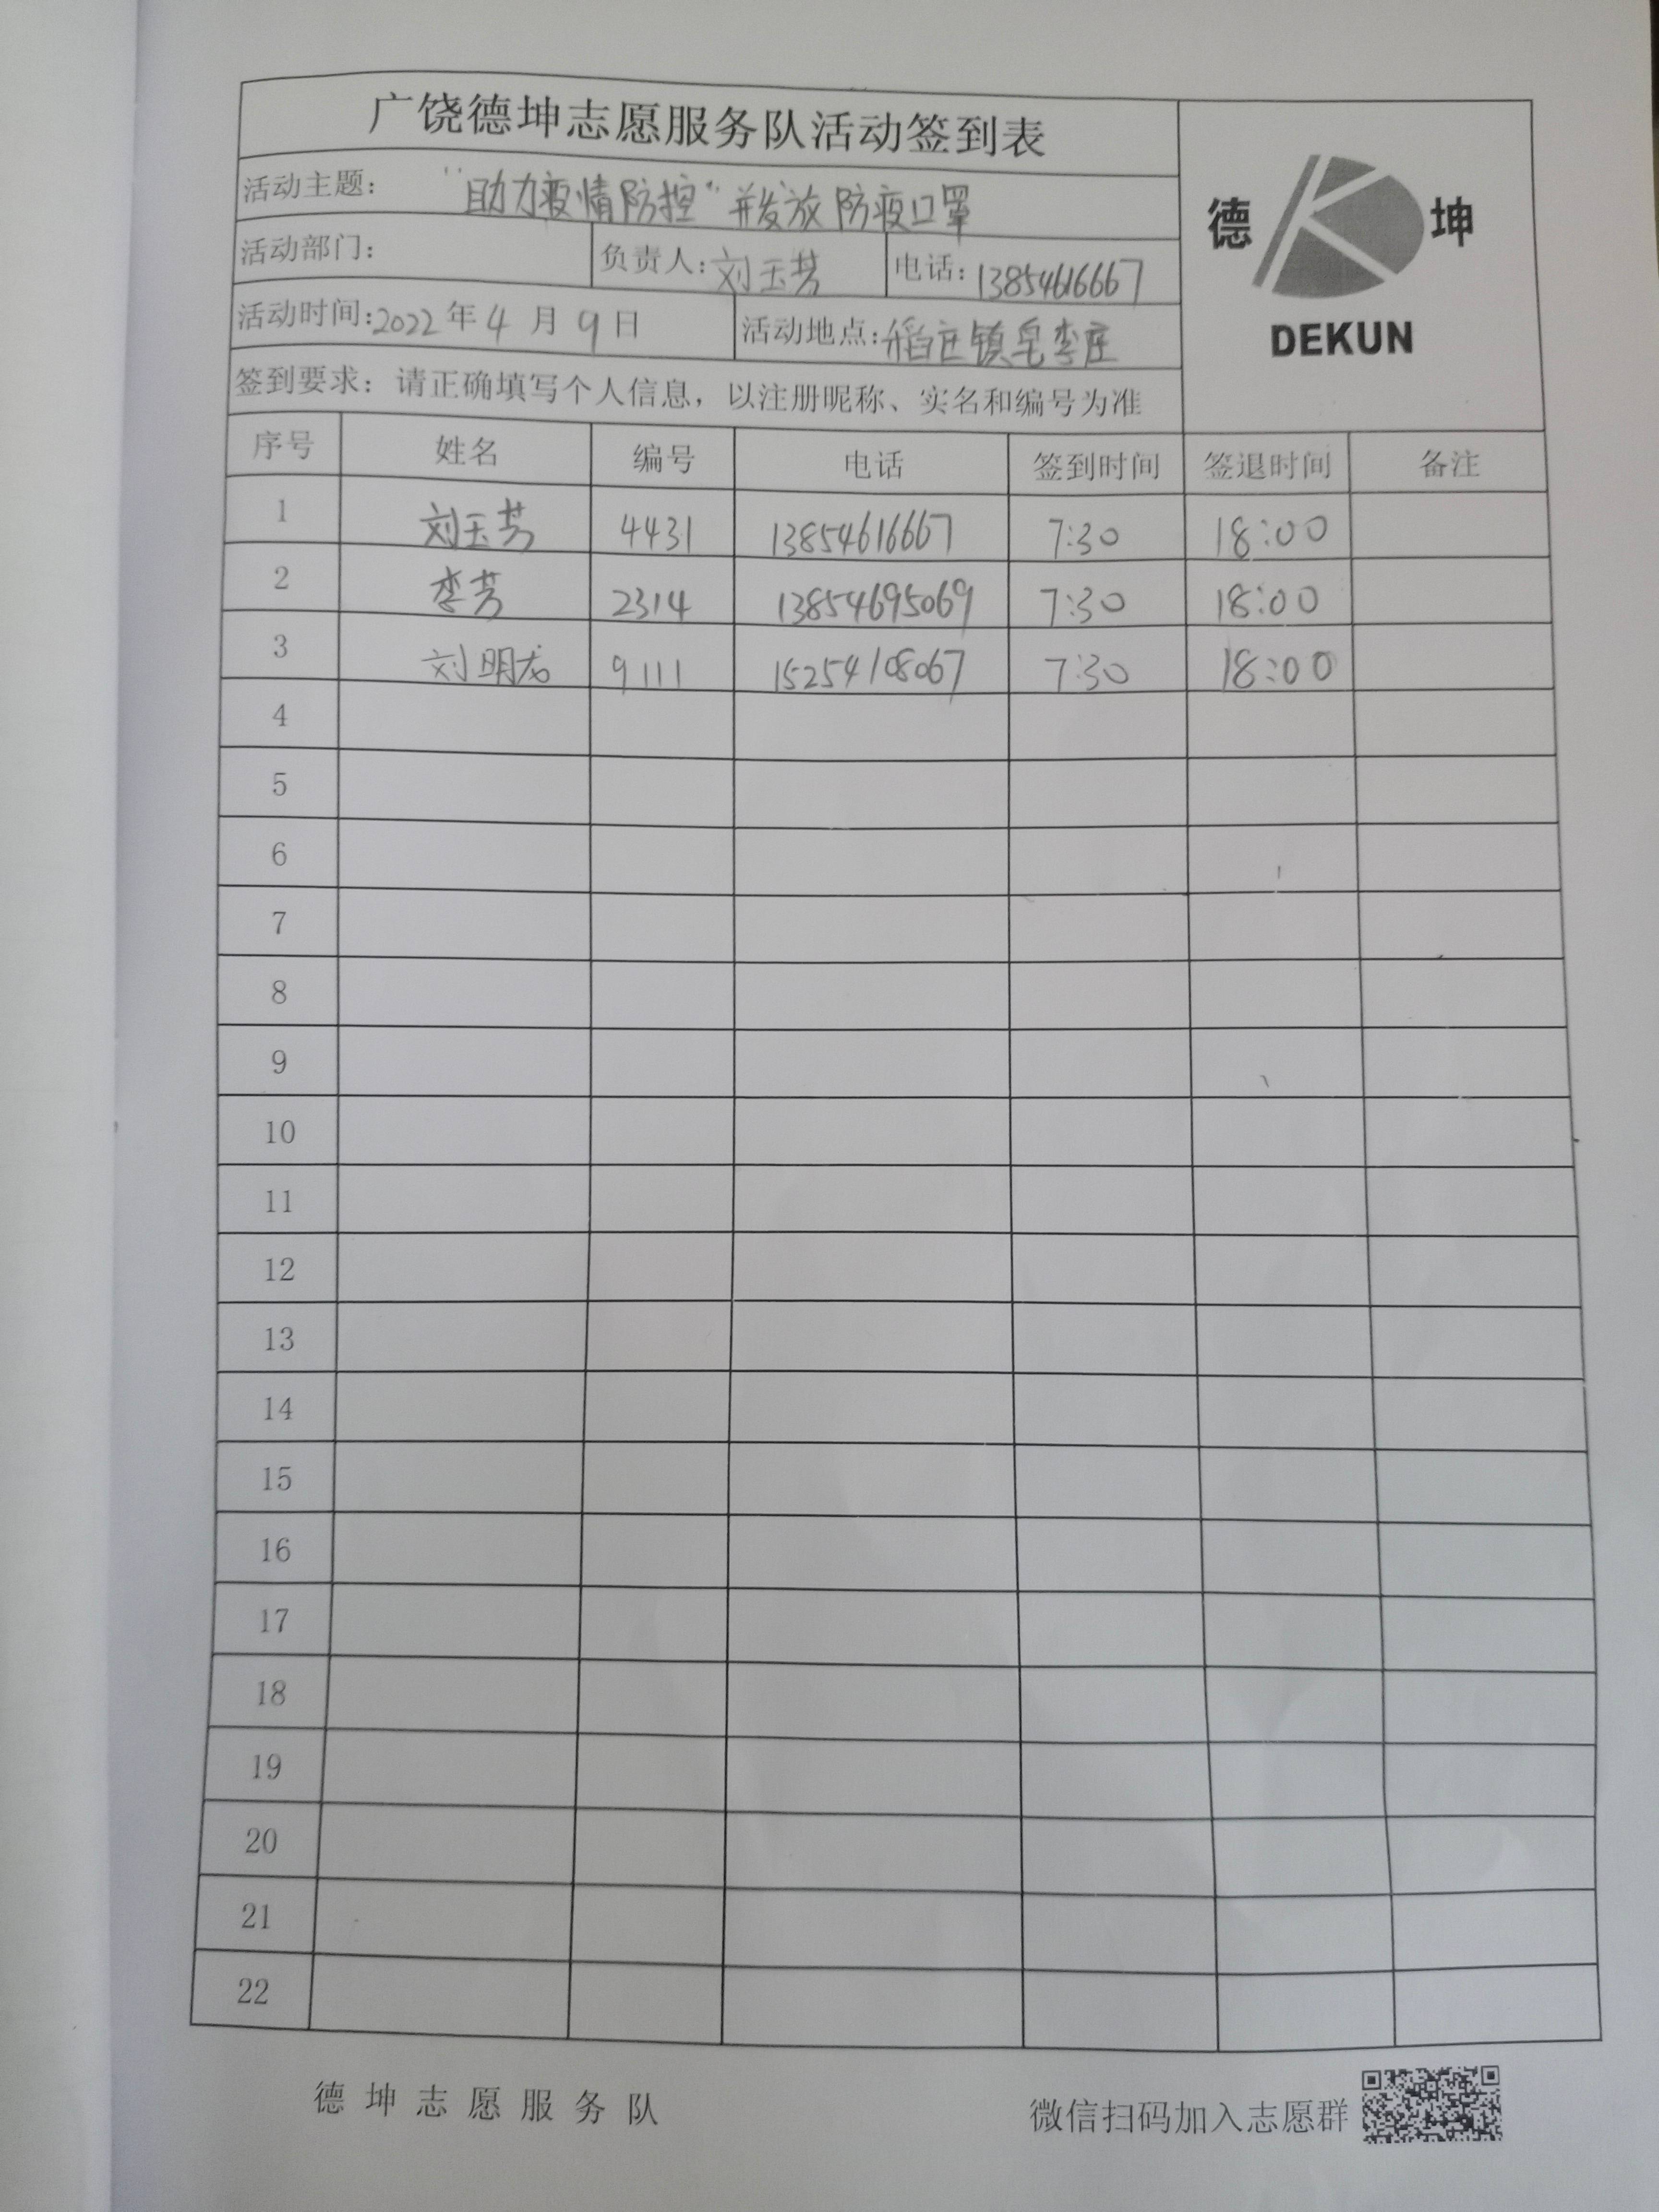 广饶德坤志愿服务队活动签到表
活动主题： “助力疫情防控”并发放防疫口罩
德 坤
DEKUN
活动部门： 负责人：刘玉芳 电话：13854616667
活动时间：2022年4月9日 活动地点：稻庄镇皂李庄
签到要求：请正确填写个人信息，以注册昵称、实名和编号为准
序号 姓名 编号 电话 签到时间 签退时间 备注
1 刘玉芳 4431 13854616667 7:30 18:00
2 李芳 2314 13854695069 7:30 18:00
3 刘明龙 9111 15254108067 7:30 18:00
4
5
6
7
8
9
10
11
12
13
14
15
16
17
18
19
20
21
22
德坤志愿服务队 微信扫码加入志愿群